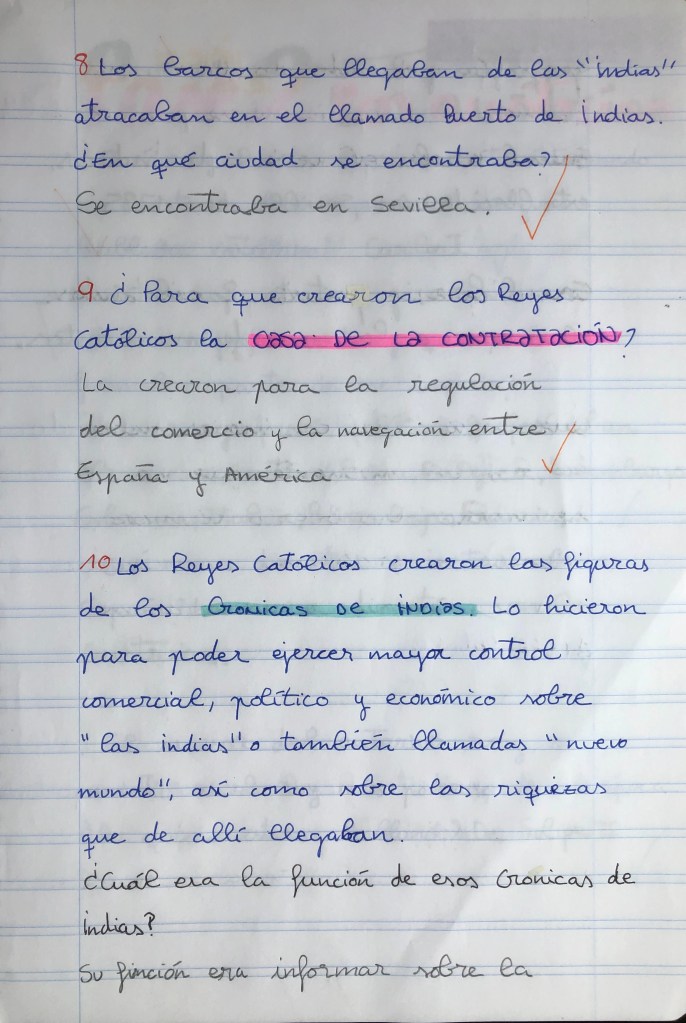 8 Los barcos que llegaban de las "indias"
atracaban en el llamado Puerto de indias.
¿En qué ciudad se encontraba?
Se encontraba en Sevilla.
9 ¿Para que crearon los Reyes
Católicos la CASA DE LA CONTRATACIÓN?
La crearon para la regulación
del comercio y la navegación entre
España y América
10 Los Reyes Católicos crearon las figuras
de los Cronicas DE indias. Lo hicieron
para poder ejercer mayor control
comercial, político y económico sobre
"las indias" o también llamadas "nuevo
mundo", así como sobre las riquezas
que de allí llegaban.
¿Cuál era la función de esos Cronicas de
indias?
Su finción era informar sobre la